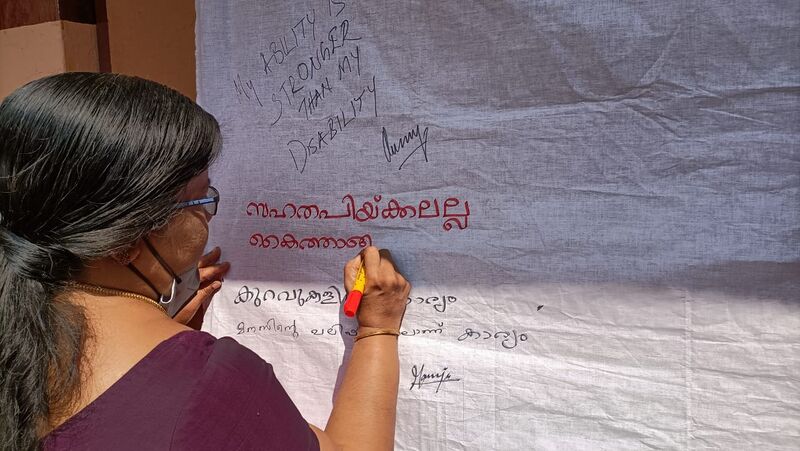 MY ABILITY IS
STRONGER
THAN MY
DISABILITY
സഹതപിയ്ക്കലല്ല
കൈത്താങ്ങ
കുറവുകളി കാര്യം
മനസിന്റെ ലാണ് കാര്യം